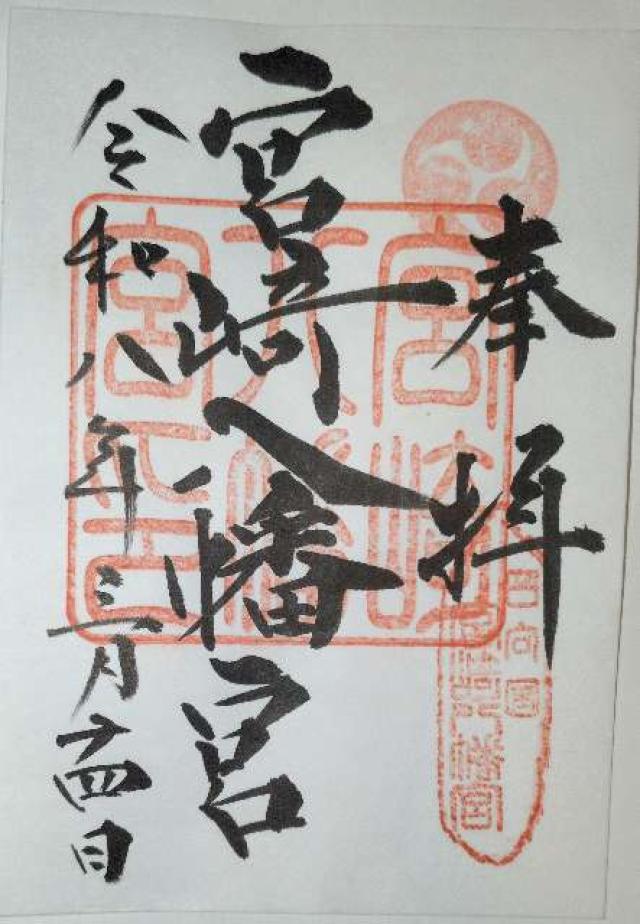 奉拝
宮崎八幡宮
令和八年三月十四日
宮崎
八幡
宮之印
日向国
宮崎八幡宮